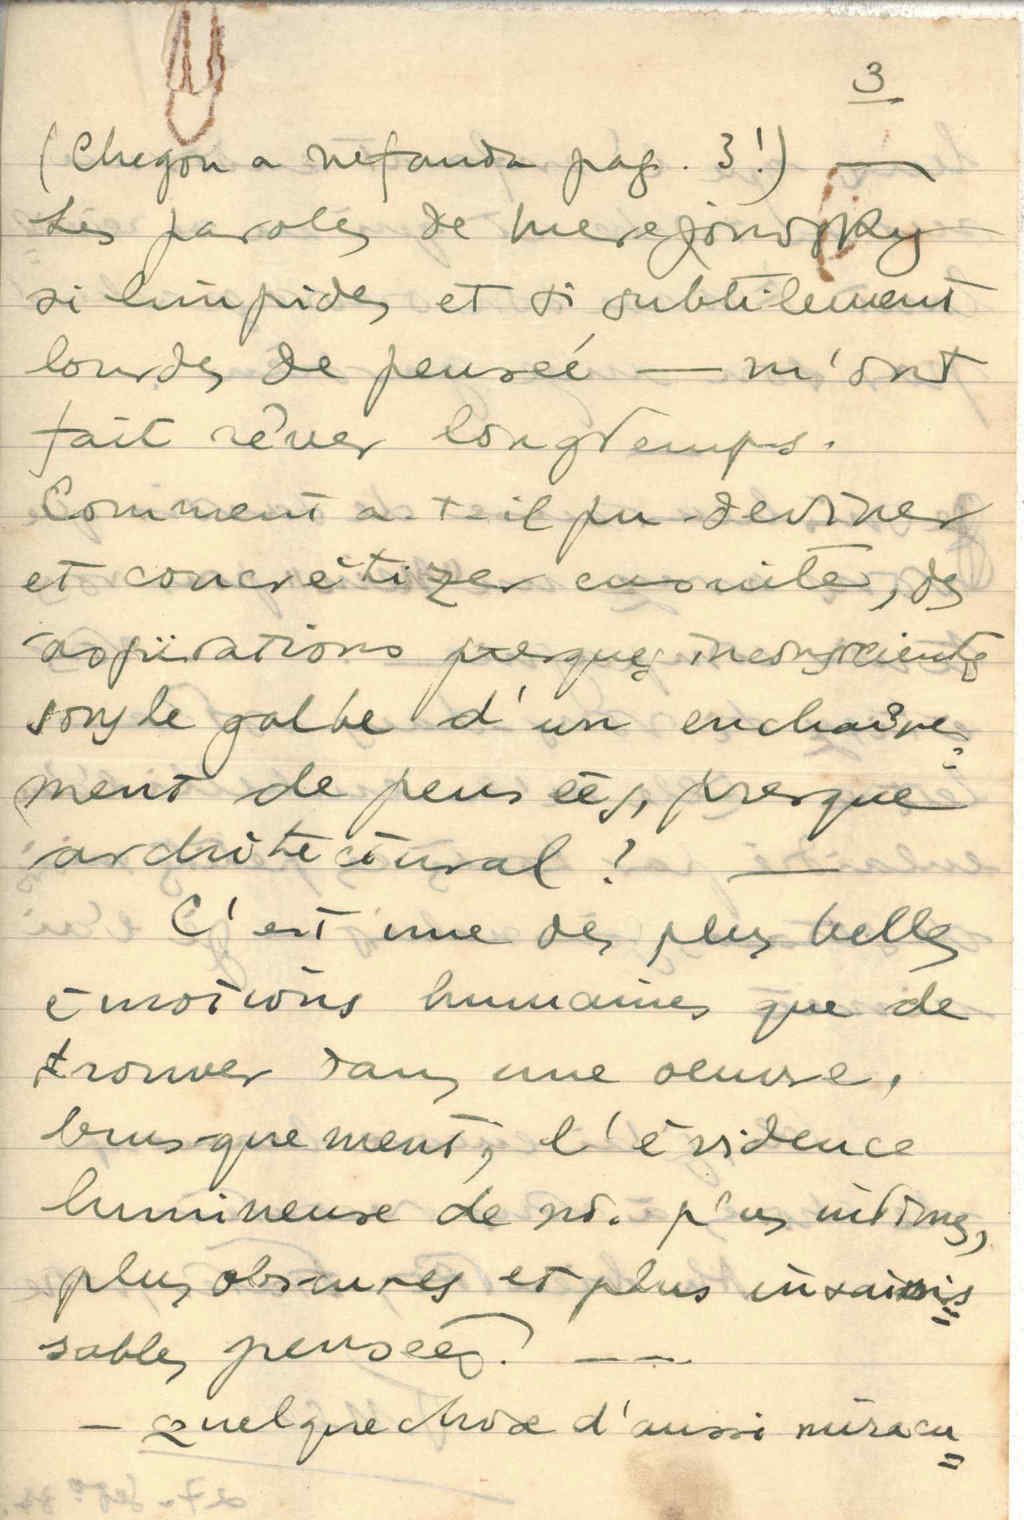 3
(Chegou a nefanda pag. 3!) —
Les paroles de Merejowsky
si limpides et si subtilement
lourdes de pensée — m'ont
fait rêver longtemps.
Comment a-t-il pu deviner
et concrétizer ensuite, des
aspirations presque inconscientes
sous le galbe d'un enchaîne=
ment de pensées, presque
architectural? —
C'est une des plus belles
émotions humaines que de
trouver dans une oeuvre,
brusquement, l'évidence
lumineuse de nos plus intimes,
plus obscures et plus insaisis=
sables pensées! — —
— Quelque chose d'aussi miracu=